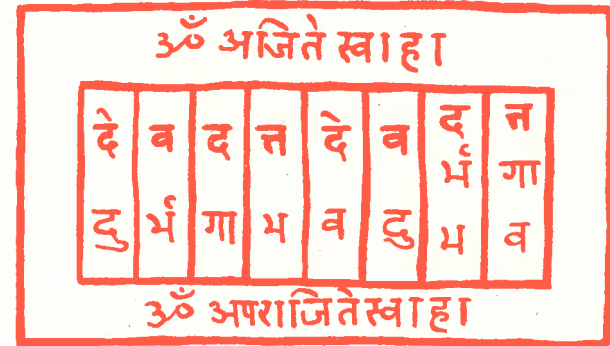 ॐ अजिते स्वाहा
दे व द त्त दे व द त्त
र्भ गा
दु र्भ गा भ व दु भ व
ॐ अपराजिते स्वाहा